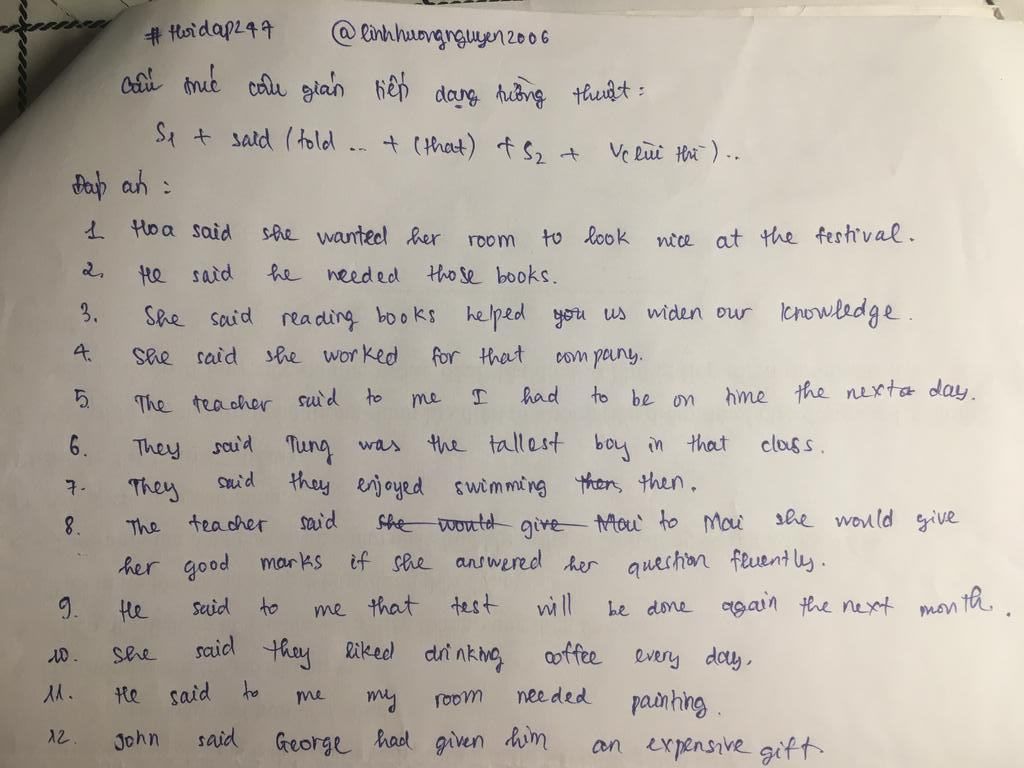 #hoidap247 @linhhuongnguyen2006
Cấu trúc câu gián tiếp dạng tường thuật:
S1 + said (told ... + (that) + S2 + V(lùi thì)..
Đáp án:
1 Hoa said she wanted her room to look nice at the festival.
2, He said he needed those books.
3. She said reading books helped you us widen our knowledge.
4. She said she worked for that company.
5. The teacher said to me I had to be on time the next day.
6. They said Tung was the tallest boy in that class.
7. They said they enjoyed swimming then, then.
8. The teacher said she would give Mai to Mai she would give
her good marks if she answered her question fluently.
9. He said to me that test will be done again the next month.
10. She said they liked drinking coffee every day.
11. He said to me my room needed painting.
12. John said George had given him an expensive gift.